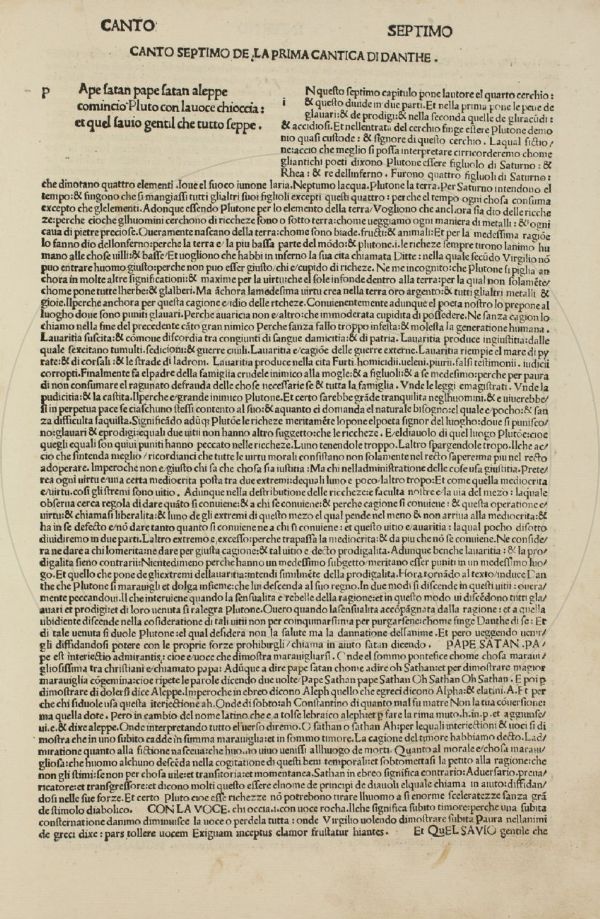 CANTO SEPTIMO
CANTO SEPTIMO DE LA PRIMA CANTICA DI DANTHE.
P Ape satan pape satan aleppe
comincio Pluto con la uoce chioccia:
et quel sauio gentil che tutto seppe.
i N questo septimo capitulo pone lautore el quarto cerchio:
& questo diuide in due parti. Et nella prima pone le pene de
glauari: & de prodigi: & nella seconda quelle de gliracūdi:
& accidiosi. Et nellentrata del cerchio finge essere Plutone demo
nio quasi custode: & signore di questo cerchio. Laqual fictio/
ne: accio che meglio si possa interpretare cirricorderemo chome
gliantichi poeti dixono Plutone essere figluolo di Saturno: &
Rhea: & re dellinferno. Furono quattro figluoli di Saturno:
che dinotano quattro elementi. Ioue el fuoco iunone laria. Neptumo lacqua. Plutone la terra. Per Saturno intendono el
tempo: & fingono che si mangiassi tutti glialtri suoi figluoli excepti questi quattro: perche el tempo ogni chosa consuma
excepto che glelementi. Adonque essendo Plutone per lo elemento della terra: Vogliono che anchora sia dio delle riche
ze: perche cioche glhuomini cerchono di richeze sono o sotto terra: chome ueggiamo ogni maniera di metalli: & ogni
caua di pietre preciose. Oueramente nascano della terra: chome sono biade: fructi: & animali: Et per la medesima ragiōe
lo fanno dio dellonferno: perche la terra e la piu bassa parte del mōdo: & plutone .i. le richeze sempre tirono lanimo hu
mano alle chose uilli: & basse: Et uogliono che habbi in inferno la sua cita chiamata Ditte: nella quale secūdo Virgilio nō
puo entrare huomo giusto: perche non puo esser giusto chi e cupido di richeze. Ne me incognito: che Plutone si piglia an
chora in molte altre significationi: & maxime per la uirtu che el sole infonde dentro alla terra: per la qual non solamēte
chome pone tutte lherbe: & glalberi. Ma āchora lamedesima uirtu crea nella terra oro argento: & tutti glialtri metalli &
gioie. Ilperche anchora per questa cagione e idio delle richeze. Conuenientemente adunque el poeta nostro lo pone al
luogho doue sono puniti glauari. Perche auaricia non e altro: che immoderata cupidita di possedere. Ne sanza cagion lo
chiamo nella fine del precedente cāto gran nimico Perche sanza fallo troppo infesta: & molesta la generatione humana.
Lauaritia suscita: & cōmoue discordia tra congiunti di sangue damicitia: & di patria. Lauaritia produce ingiustitia: dalla
quale sexcitano tumulti. seditioni: & guerre ciuili. Lauaritia e cagiōe delle guerre externe. Lauaritia riempie el mare di py
rate: & di corsali: & le strade di ladroni. Lauaritia produce nella cita Furti homicidii. ueleni. piurii. falsi testimonii. iudicii
corropti. Finalmente fa elpadre della famiglia crudele inimico alla mogle: & a figluoli: & a se medesimo: perche per paura
di non consumare el ragunato defrauda delle chose necessarie se & tutta la famiglia. Vnde le leggi emagistrati. Vnde la
pudicitia: & la castita. Ilperche e grande inimico Plutone. Et certo sarebbe grāde tranquilita neglhuomini: & e uiuerebbe/
si in perpetua pace se ciaschuno stessi contento al suo: & aquanto ci domanda el naturale bisogno: el quale e pocho: & san
za difficulta saquista. Significādo adūq; Plutōe le richeze meritamēte lo pone el poeta signor del luogho: doue si punisco/
no: glauari & eprodigi: equali due uitii non hanno altro suggetto: che le richeze. E eldiauolo di quel luogo Plutōe: cioe
quegli equali son quiui puniti hanno peccato nelle richeze. Luno tenendole troppo. Laltro spargendole troppo. Ilche ac/
cio che sintenda meglio ricordianci che tutte le uirtu morali consistano non solamente nel recto saperema piu nel recto
adoperare. Imperoche non e giusto chi sa che chosa sia iustitia: Ma chi nelladministratione delle cose usa giustitia. Prete/
rea ogni uirtu e una certa mediocrita posta tra due extremi: dequali luno e poco laltro tropo: Et come quella mediocrita
e uirtu. cosi gli stremi sono uitio. Adunque nella destributione delle riccheze: e faculta nostre e la uia del mezo: laquale
obserua certa regola di dare quāto si conuiene: & a chi se conuiene: & perche cagione si conuiene: & questa operatione e
uirtu: & chiamasi liberalita: & luno de gli extremi di questo mezo el qual pende nel meno & non arriua alla mediocrita: &
ha in se defecto e nō dare tanto quanto si conuiene ne a chi si conuiene: et questo uitio e auaritia: laqual pocho disotto
diuidiremo in due parti. Laltro extremo e excesso: perche trapassa la mediocrita: & da piu che nō se conuiene. Ne conside/
ra ne dare a chi lomerita: ne dare per giusta cagione: & tal uitio e decto prodigalita. Adunque benche lauaritia: & la pro/
digalita sieno contrarii: Nientedimeno perche hanno un medessimo subgetto meritano esser puniti in un medessimo luo/
go. Et quello che pone de gli extremi dellauaritia: intendi similmēte della prodigalita. Hora tornādo al texto induce Dan
the che Plutone si marauigli et dolga insieme: che lui descenda al suo regno. In due modi si discende in questi uitii: o uera/
mente peccandoui. Ilche interuiene quando la sensualita e rebelle della ragione: et in questo modo ui discēdono tutti gla/
uari et prodigi: et di loro uenuta si ralegra Plutone. Ouero quando lasensualita accōpagnata dalla ragione: et a quella
ubidiente discende nella cosideratione di tali uitii non per coinquinarsi ma per purgarsene: chome finge Danthe di se: Et
di tale uenuta si duole Plutone: el qual desidera non la salute ma la dannatione dellanime. Et pero ueggendo uenir/
gli diffidandosi potere con le proprie forze prohiburgli chiama in aiuto satan dicendo. PAPE SATAN. PA/
pe est interiectio admirantis: cioe e uoce: che dimostra marauigliarsi. Onde el sommo pontefice chome chosa maraui/
gliosissima tra christiani e chiamato papa: Adūque a dire pape satan chome a dire oh Sathan: et per dimostrare magior
marauiglia cōgemina: cioe ripete le parole dicendo due uolte Pape Sathan pape Sathan Oh Sathan Oh Sathan. E poi p
dimostrare di dolersi dice Aleppe. Imperoche in ebreo dicono Aleph quello che egreci dicono Alpha: & elatini. A. Et per
che chi si duole usa questa iteriectiōe ah. Onde di sobto: ah Constantino di quanto mal fu matre Non la tua cōuersione:
ma quella dote. Pero in cambio del nome latino. che e. a tolse lebraico aleph et p fare la rima muto. h. in. p. et aggiunse/
ui. e. & dixe aleppe. Onde interpretando tutto el uerso diremo. O sathan o sathan Ah: per lequali interiectioni & uoci si di
mostra che in uno subito cadde in summa marauiglia: et in sommo timore. La cagione del timore habbiamo decto. Lad/
miratione quanto alla fictione nasceua: che huomo uiuo uenissi alluogo de morti. Quanto al morale e chosa maraui/
gliosa: che huomo alchuno descēda nella cogitatione di questi beni temporali: et sobtomettasi la petito alla ragione: che
non gli stimi: se non per chosa uile: et transitoria: et momentanea. Sathan in ebreo significa contrario: Aduersario. preua/
ricatore: et transgressore: et dicono molti questo essere el nome de principi de diauoli elquale chiama in aiuto: diffidan/
dosi nelle sue forze. Et certo Pluto cioe esse richeze nō potrebono tirare lhuomo a si enorme sceleratezze sanza grā/
de stimolo diabolico. CON LA VOCE. chi occia. i. con uoce rocha. Ilche significa subito timore: perche una subita
consternatione danimo diminuisce la uoce o perdela tutta: onde Virgilio uolendo dimostrare subita Paura nellanimi
de greci dixe: pars tollere uocem Exiguam inceptus clamor frustatur hiantes. Et QuEL SAVIO gentile che